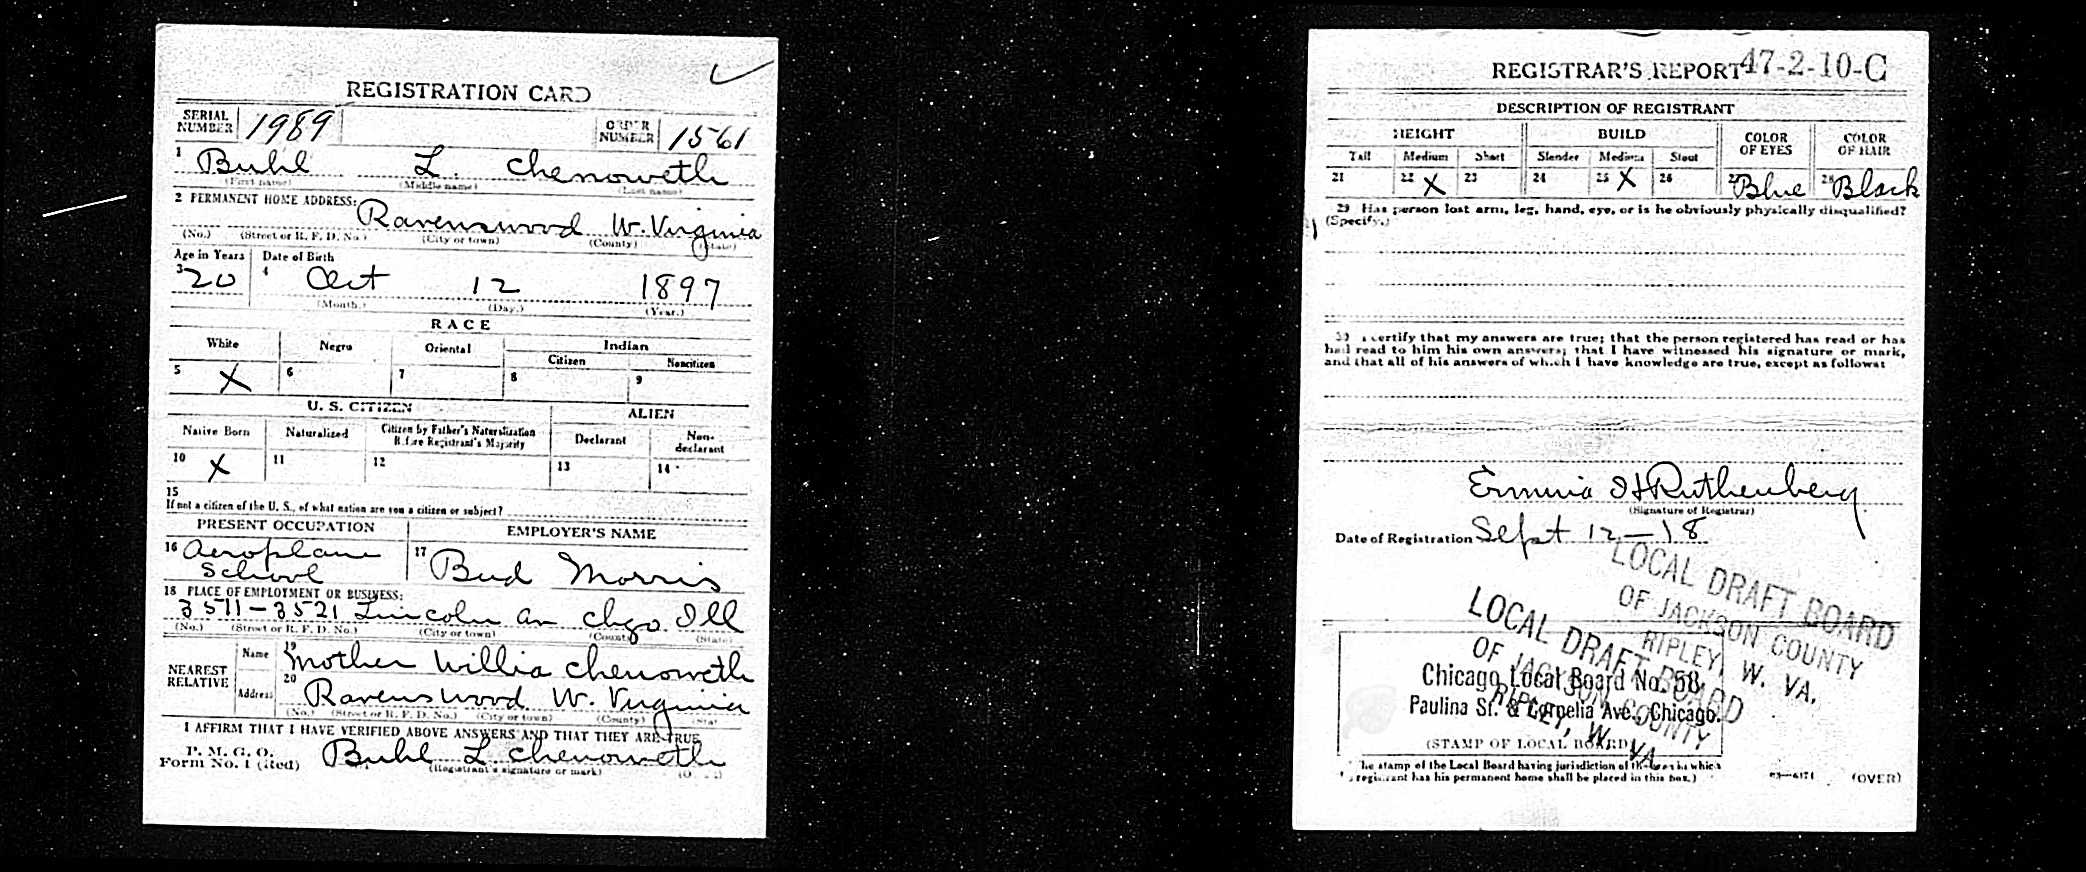 REGISTRATION CARD
SERIAL NUMBER 1989 ORDER NUMBER 1561
1 Buhl L. Chenoweth
(First name) (Middle name) (Last name)
2 PERMANENT HOME ADDRESS:
Ravenswood W. Virginia
(No.) (Street or R. F. D. No.) (City or town) (County) (State)
Age in Years Date of Birth
3 20 4 Oct 12 1897
(Month.) (Day.) (Year.)
RACE
White Negro Oriental Indian
Citizen Noncitizen
5 X 6 7 8 9
U. S. CITIZEN ALIEN
Native Born Naturalized Citizen by Father's Naturalization Before Registrant's Majority Declarant Non-declarant
10 X 11 12 13 14
15
If not a citizen of the U. S., of what nation are you a citizen or subject?
PRESENT OCCUPATION EMPLOYER'S NAME
16 Aeroplane School 17 Bud Morris
18 PLACE OF EMPLOYMENT OR BUSINESS:
3511-3521 Lincoln av Chgo Ill
(No.) (Street or R. F. D. No.) (City or town) (County) (State)
NEAREST RELATIVE Name 19 Mother Willia Chenoweth
Address 20 Ravenswood W. Virginia
(No.) (Street or R. F. D. No.) (City or town) (County) (State)
I AFFIRM THAT I HAVE VERIFIED ABOVE ANSWERS AND THAT THEY ARE TRUE
P. M. G. O.
Form No. 1 (Red) Buhl L Chenoweth
(Registrant's signature or mark) (OVER)
REGISTRAR'S REPORT 47-2-10-C
DESCRIPTION OF REGISTRANT
HEIGHT BUILD COLOR OF EYES COLOR OF HAIR
Tall Medium Short Slender Medium Stout
21 22 X 23 24 25 X 26 27 Blue 28 Black
29 Has person lost arm, leg, hand, eye, or is he obviously physically disqualified?
(Specify.)
30 I certify that my answers are true; that the person registered has read or has
had read to him his own answers; that I have witnessed his signature or mark,
and that all of his answers of which I have knowledge are true, except as follows:
Ruthenberg
(Signature of Registrar)
Date of Registration Sept 12-18
LOCAL DRAFT BOARD
OF JACKSON COUNTY
RIPLEY, W. VA.
LOCAL DRAFT BOARD
OF JACKSON COUNTY
RIPLEY, W. VA.
Chicago Local Board No. 58
Paulina St. & Cornelia Ave., Chicago.
(STAMP OF LOCAL BOARD)
The stamp of the Local Board having jurisdiction of the area in which
registrant has his permanent home shall be placed in this box.)
03-6171 (OVER)